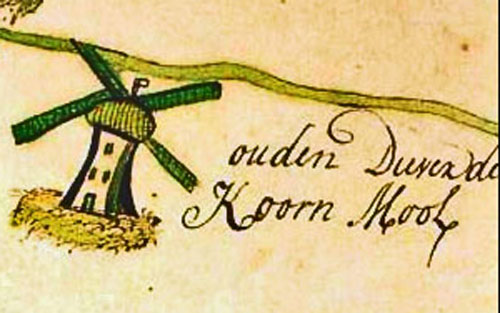 ouden Duvende
Koorn Mool